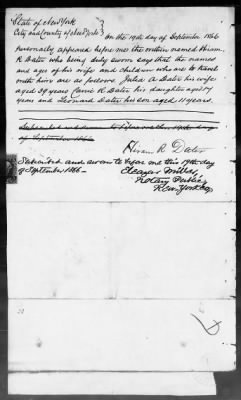 State of New York
City and County of New York
On the 19th day of September 1866
personally appeared before me the within named Hiram
R Dater who being duly sworn says that the names
and age of his wife and children who are to travel
with him are as follows Julia A Dater his wife
aged 39 years Carrie R Dater his daughter aged 17
years and Leonard Dater his son aged 11 years.
Subscribed and sworn to before me this 19th day
of September 1866
Hiram R Dater
Subscribed and sworn to before me this 19th day
of September 1866 -
Eleazar Miller
Notary Public
New York Co